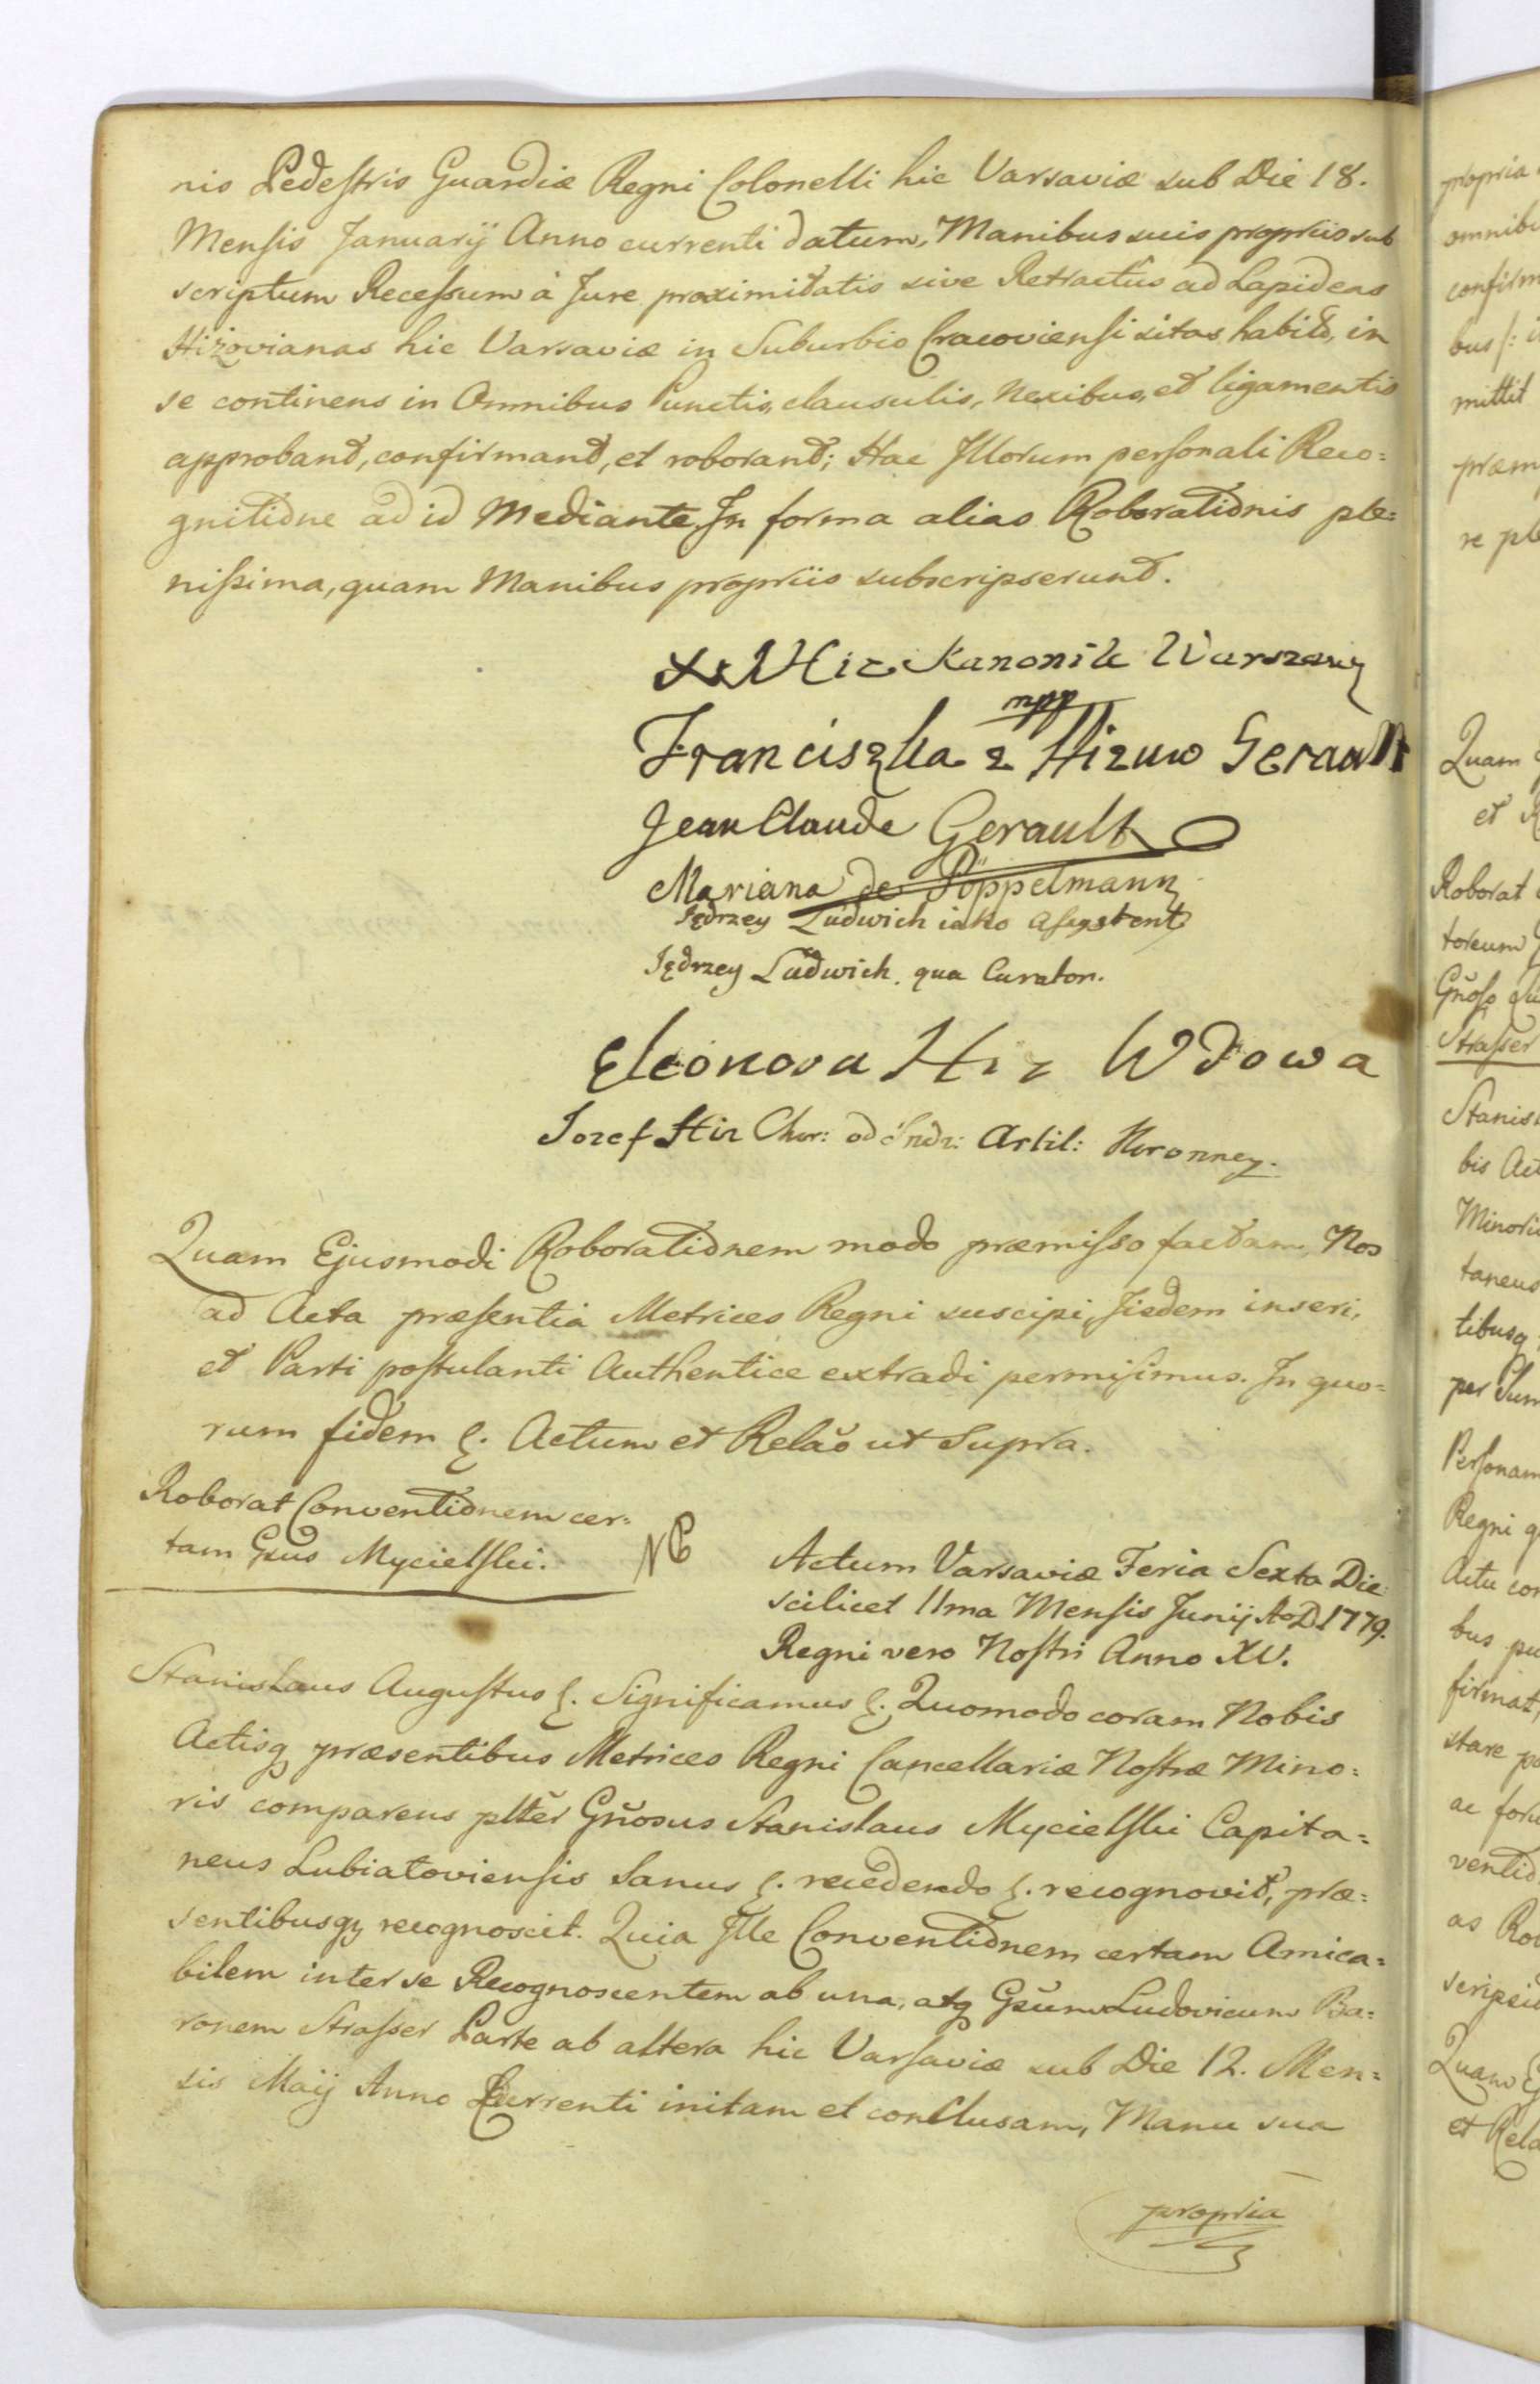 nis Pedestris Guardiæ Regni Colonelli hic Varsaviæ sub Die 18.
Mensis Januarij Anno currenti datum, Manibus suis propriis sub
scriptum Recessum à Jure proximitatis sive Retractûs ad Lapideas
Hizovianas hic Varsaviæ in Suburbio Cracoviensi sitas habito, in
se continens in Omnibus Punctis, clausulis, Nexibus, et ligamentis
approbant, confirmant, et roborant; Hac Illorum personali Reco=
gnitione ad id Mediante, In forma alias Roborationis ple=
nissima, quam Manibus propriis subscripserunt.
X. Hiz Kanonik Warszawy
mpp
Franciszka z Hizuw Gerault
Jean Claude Gerault
Mariana de Pöppelmann
Jędrzey Ludwich iako Asystent
Jędrzey Ludwich. qua Curator.
Eleonora Hiz Wdowa
Jozef Hiz Chor: od Artil: Koronney.
Quam Ejusmodi Roborationem modo præmisso factam, Nos
ad Acta præsentia Metrices Regni suscipi, Jisdem inseri,
et Parti postulanti Authentice extradi permisimus. In quo=
rum fidem &. Actum et Relão ut Supra.
Roborat Conventionem cer=
tam Gsus Mycielski.
Actum Varsaviæ Feria Sexta Die
scilicet 11ma Mensis Junij AoD 1779.
Regni vero Nostri Anno XV.
Stanislaus Augustus &. Significamus &. Quomodo coram Nobis
Actisq præsentibus Metrices Regni Cancellariæ Nostræ Mino=
ris comparens plter Gnosus Stanislaus Mycielski Capita=
neus Lubiatoviensis Sanus &. recedendo &. recognovit, præ=
sentibusq recognoscit. Quia Ille Conventionem certam Amica=
bilem inter se Recognoscentem ab una, atq Gsum Ludovicum Ba=
ronem Strasser Parte ab altera hic Varsaviæ sub Die 12. Men=
sis Maij Anno Currenti initam et conclusam, Manu sua
propria
propria
mittit
Quam
et
Roborat
Strasser
bis
taneus
tibusq
per
Personam
Regni
Actu
bus
firmat,
stare
as
Quam
et